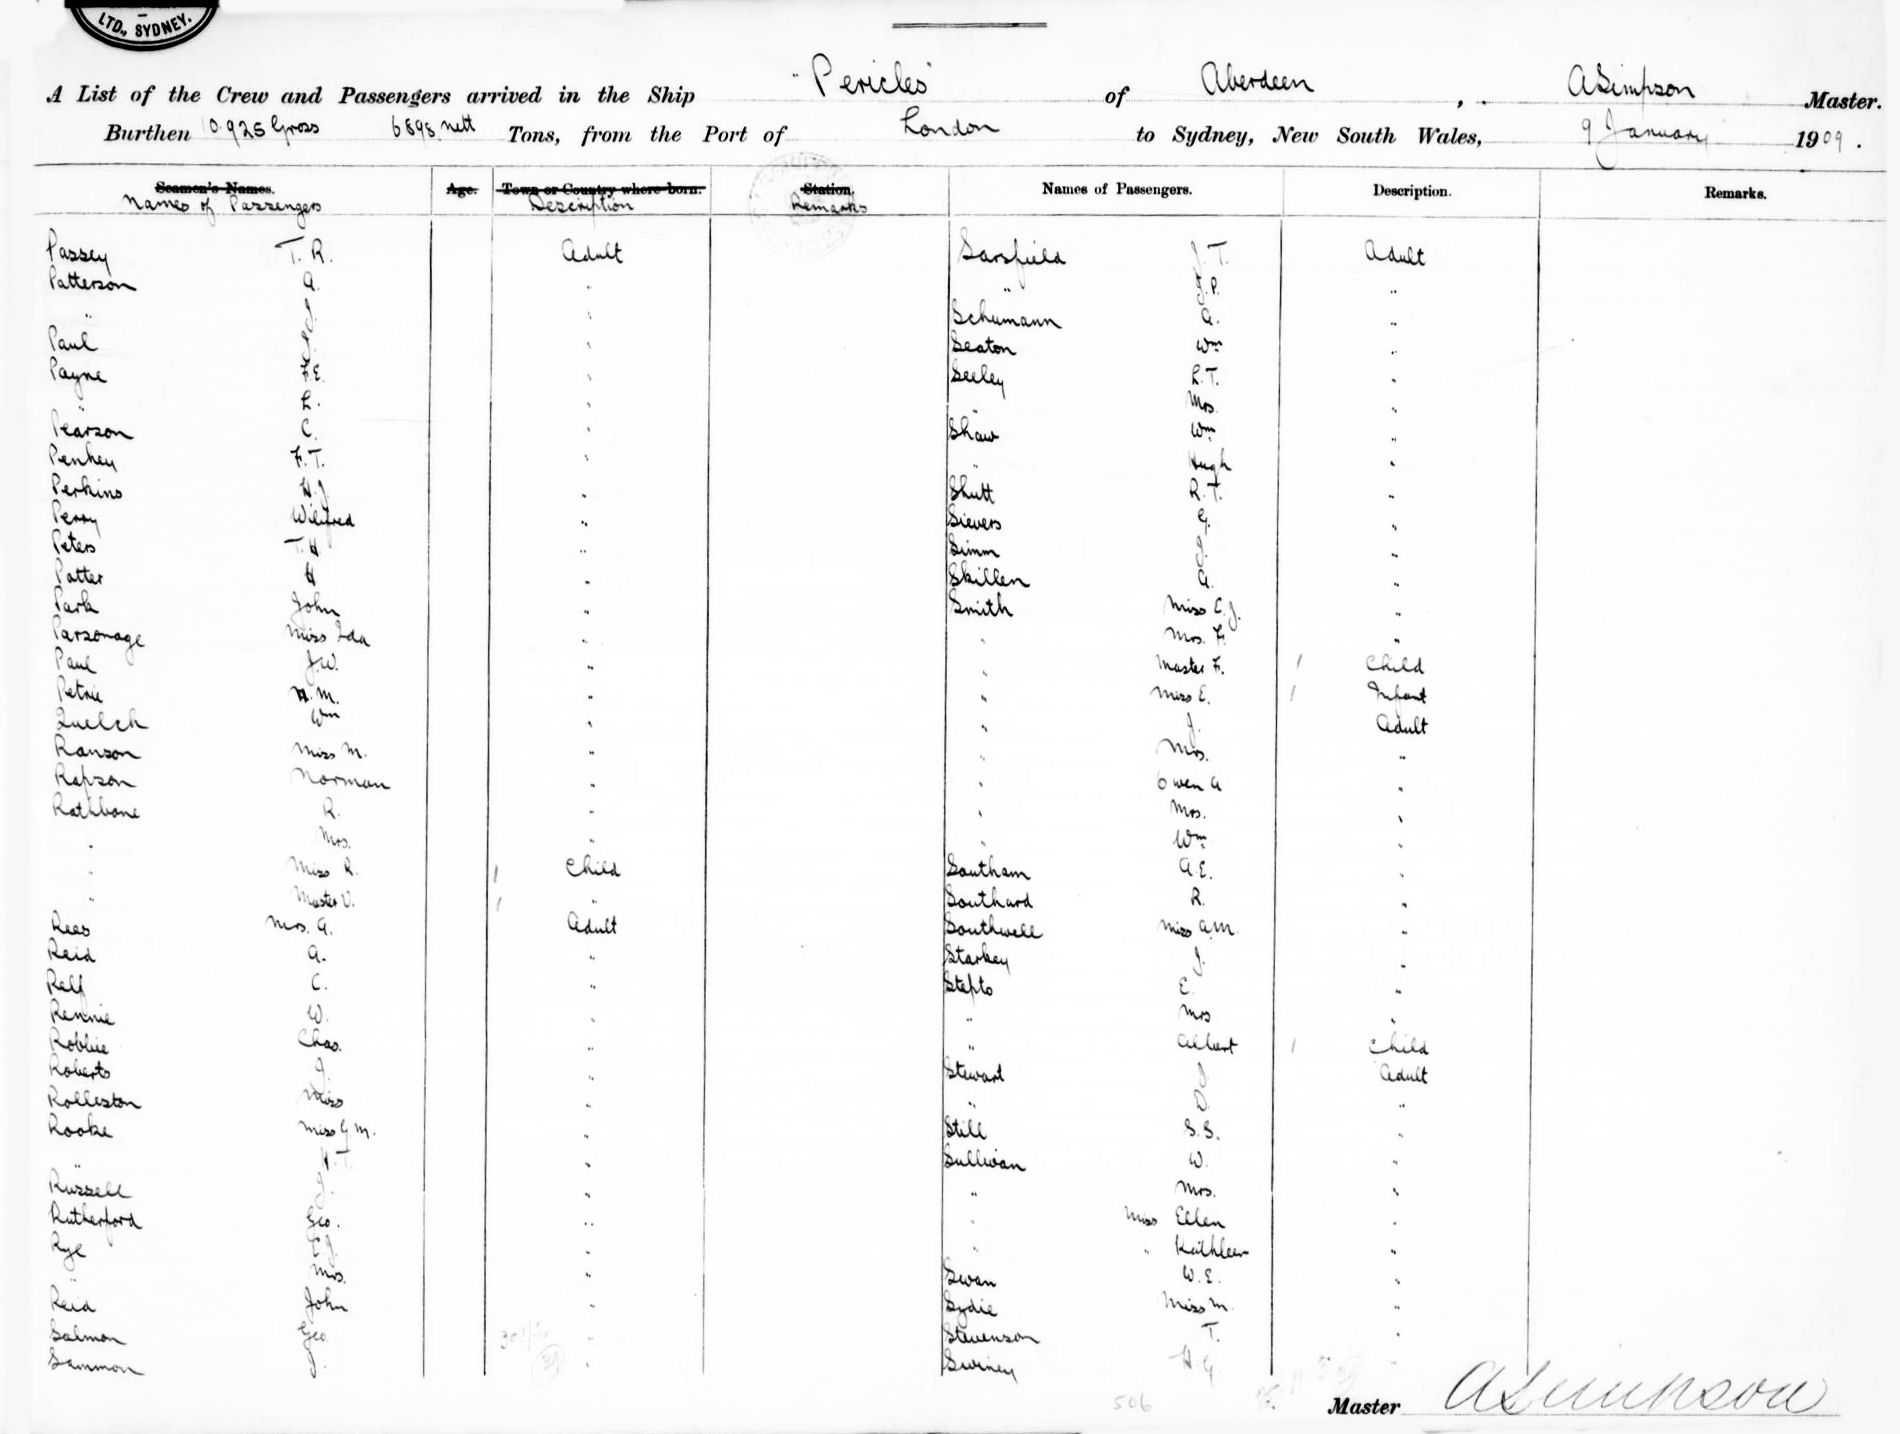 LTD., SYDNEY.
A List of the Crew and Passengers arrived in the Ship "Pericles" of Aberdeen, A Simpson Master.
Burthen 10.925 Gross 6898 nett Tons, from the Port of London to Sydney, New South Wales, 9 January 1909.
Seamen's Names. Age. Town or Country where born. Station. Names of Passengers. Description. Remarks.
Names of Passengers Description Remarks
Passey T. R. Adult
Patterson A. "
" J. "
Paul J. "
Payne F.E. "
" R. "
Pearson C. "
Penhey F.T. "
Perkins H.J. "
Perry Wilfred "
Peters T.H "
Potter H "
Park John "
Parsonage Miss Ida "
Paul J.W. "
Petrie H.M. "
Quelch Wm "
Ranson Miss M. "
Rapson Norman "
Rathbone R. "
" Mrs. "
" Miss R. Child
" Master V. "
Rees Mrs. A. Adult
Reid A. "
Relf C. "
Rennie W. "
Roblie Chas. "
Roberts J. "
Rolleston Miss "
Rooke Miss G.M. "
" F.T. "
Russell J. "
Rutherford Geo. "
Rye E.J. "
" Mrs. "
Reid John "
Salmon Geo "
Sammon J. "
Sarsfield J.T. Adult
" J.P. "
Schumann A. "
Seaton Wm "
Seeley R.T. "
" Mrs. "
Shaw Wm "
" Hugh "
Shutt R.T. "
Sievers G. "
Simm J. "
Skillen A. "
Smith Miss E.J. "
" Mrs. F. "
" Master F. Child
" Miss E. Infant
" J. Adult
" Mrs. "
" Owen A "
" Mrs. "
" Wm "
Southam A.E. "
Southard R. "
Southwell Miss A.M. "
Starkey J. "
Stepto E. "
" Mrs "
" Albert Child
Stewart J Adult
" D "
Still S.S. "
Sullivan W. "
" Mrs. "
" Miss Ellen "
" " Kathleen "
Swan W.E. "
Sydie Miss M. "
Stevenson T. "
Swiney H.G. "
506
Master A Simpson